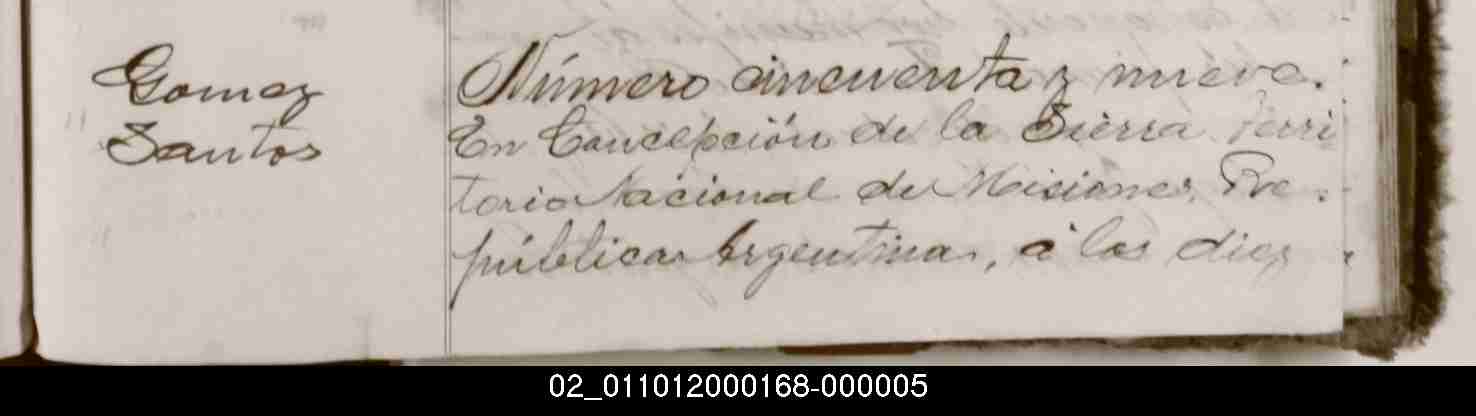 Gomez
Santos
Número cincuenta y nueve.
En Concepción de la Sierra Terri
torio Nacional de Misiones, Re-
pública Argentina, á los diez
02_011012000168-000005